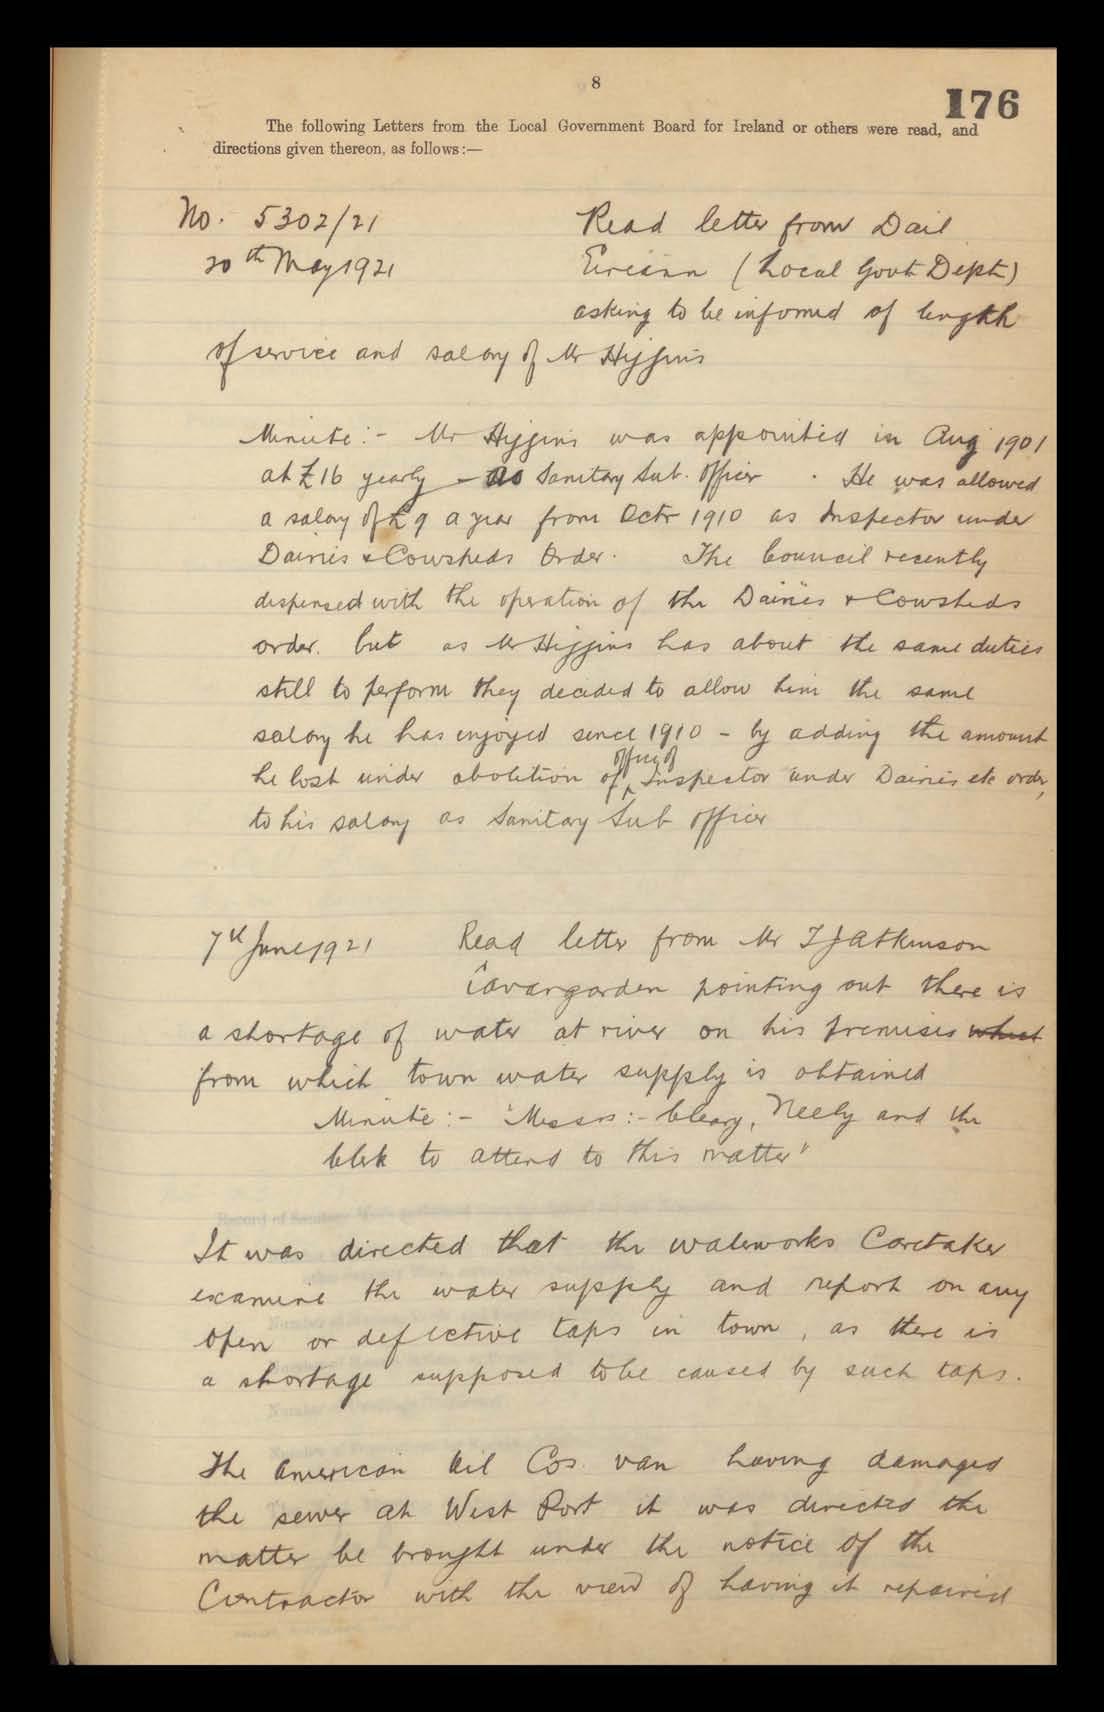 8
176
The following Letters from the Local Government Board for Ireland or others were read, and
directions given thereon, as follows:—
No. 5302/21 Read letter from Dail
20th May 1921 Eireann (Local Govt Dept)
asking to be informed of length
of service and salary of Mr Higgins
Minute:- Mr Higgins was appointed in Aug 1901
at £16 yearly - as Sanitary Sub. Officer. He was allowed
a salary of £9 a year from Octr 1910 as Inspector under
Dairies & Cowsheds Order. The Council recently
dispensed with the operation of the Dairies & Cowsheds
order. but as Mr Higgins has about the same duties
still to perform they decided to allow him the same
salary he has enjoyed since 1910 - by adding the amount
office of
he lost under abolition of Inspector under Dairies etc order,
to his salary as Sanitary Sub officer
7th June 1921 Read letter from Mr T J Atkinson
Cavangarden pointing out there is
a shortage of water at river on his premises
from which town water supply is obtained
Minute:- "Messrs:- Cleary, Neely and the
Clerk to attend to this matter"
It was directed that the waterworks Caretaker
examine the water supply and report on any
open or defective taps in town, as there is
a shortage supposed to be caused by such taps.
The American Oil Cos. van having damaged
the sewer at West Port it was directed the
matter be brought under the notice of the
Contractor with the view of having it repaired